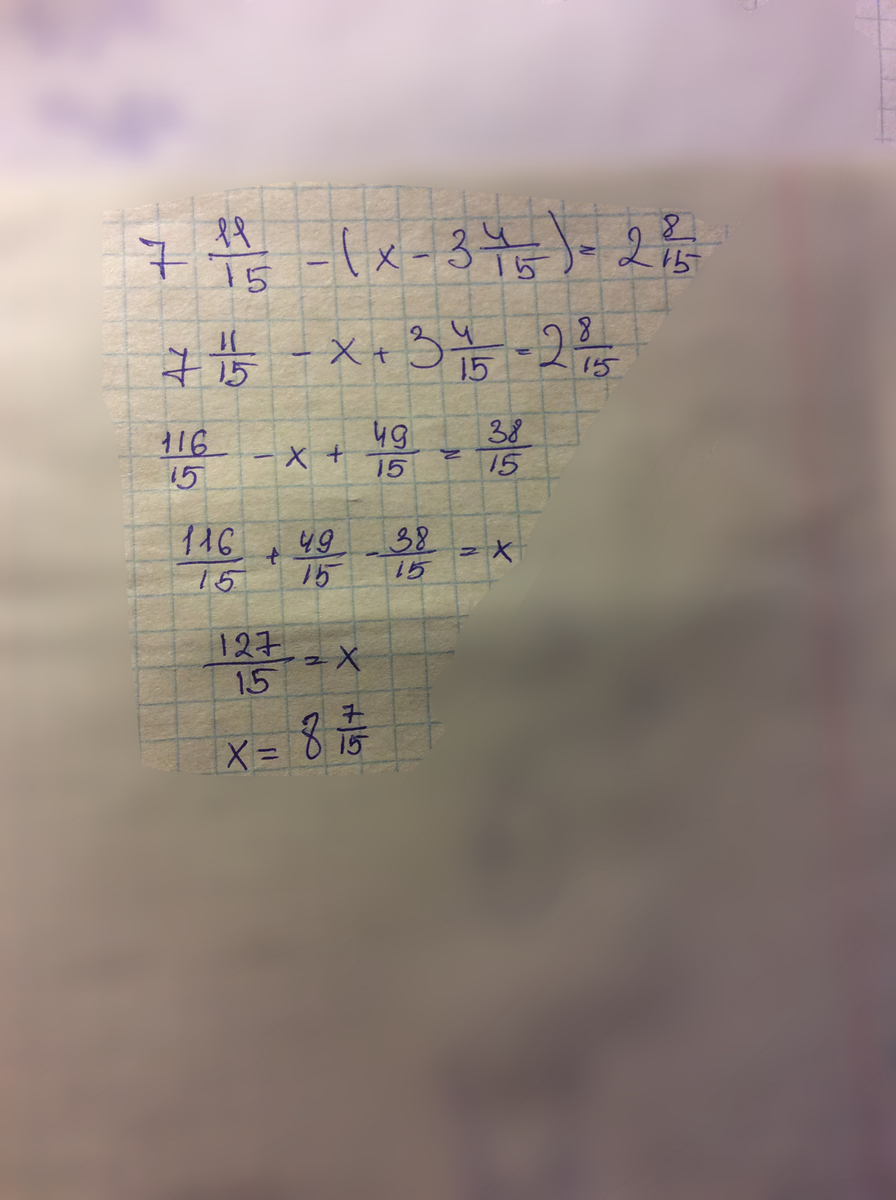 7 11/15 - (x - 3 4/15) = 2 8/15
7 11/15 - x + 3 4/15 = 2 8/15
116/15 - x + 49/15 = 38/15
116/15 + 49/15 - 38/15 = x
127/15 = x
x = 8 7/15